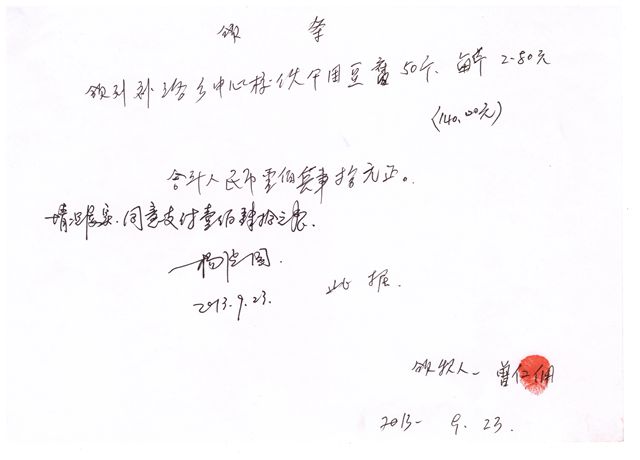 领 条
领到 乡中心校伙 用豆 50斤. 单 2.80元
(140.00元)
合计人民币壹佰 拾元正。
情况属实. 同意支付壹佰肆拾元
杨 国.
2013.9.23.
此 据.
领款人 曾仁
2013- 9. 23.